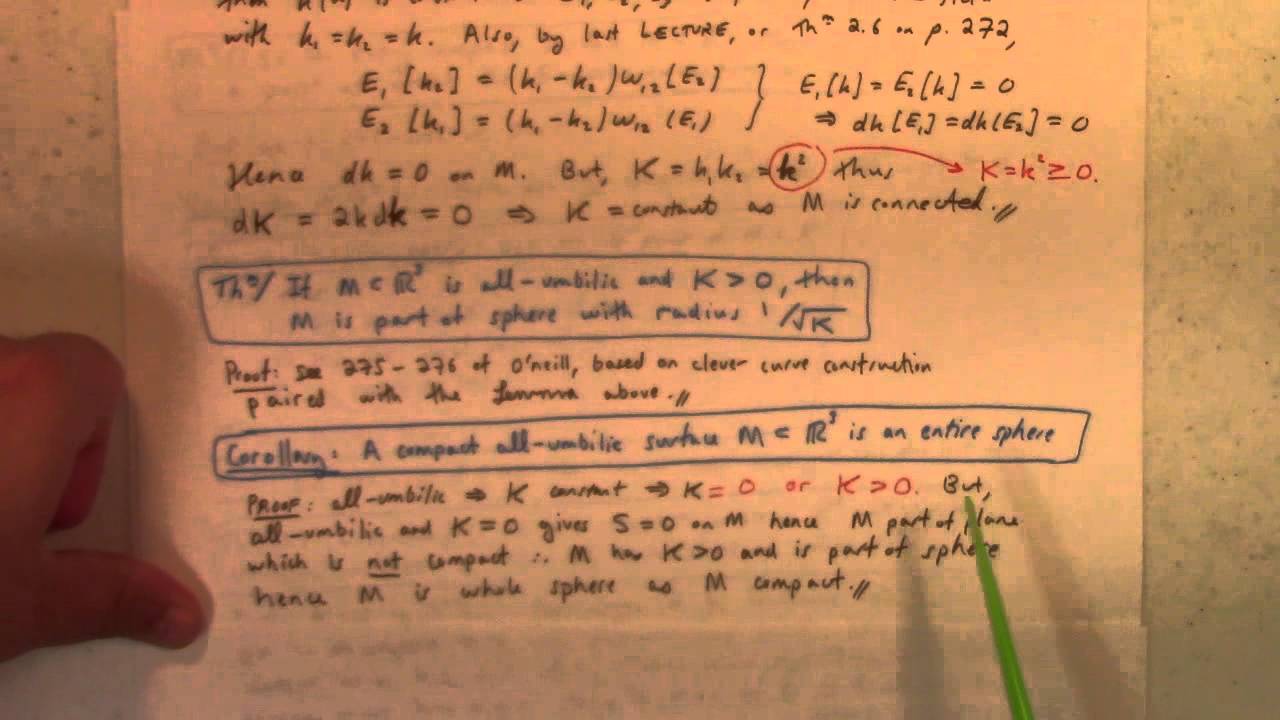 with k₁ = k₂ = k. Also, by last LECTURE, or Thᵐ 2.6 on p. 272,
E₁[k₂] = (k₁ - k₂)ω₁₂(E₂) } E₁[k] = E₂[k] = 0
E₂[k₁] = (k₁ - k₂)ω₁₂(E₁) ⇒ dk[E₁] = dk(E₂) = 0
Hence dk = 0 on M. But, K = k₁k₂ = k² thus → K = k² ≥ 0.
dK = 2kdk = 0 ⇒ K = constant as M is connected.//
Thᵐ/ If M ⊂ ℝ³ is all-umbilic and K > 0, then
M is part of sphere with radius 1/√K
Proof: see 275-276 of O'neill, based on clever curve construction
paired with the Lemma above.//
Corollary: A compact all-umbilic surface M ⊂ ℝ³ is an entire sphere
PROOF: all-umbilic ⇒ K constant ⇒ K = 0 or K > 0. But,
all-umbilic and K = 0 gives S = 0 on M hence M part of plane
which is not compact ∴ M has K > 0 and is part of sphere
hence M is whole sphere as M compact.//